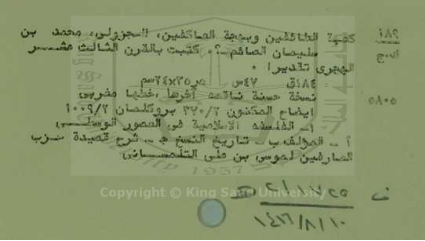 ١٨٩ كفاية الطائفين وبهجة الصائفين، الجزولي، محمد بن
سليمان ؟. كتبت بالقرن الثالث عشر
الهجري تقديرا.
١٨٤ق ٤٧س ٣٥×٢٤سم
٥٨٠٥ نسخة حسنة ناقصة آخرها، خطها مغربي
ايضاح المكنون ٣٧٠/٢ بروكلمان ١٠٠٩/٢
الفلسفة الاسلامية في العصور الوسطى
أ - المؤلف ب - تاريخ النسخ ج - شرح قصيدة حزب
العارفين لموسى بن علي التلمساني
1957
Copyright © King Saud University
١٤١٦/٨/١٠